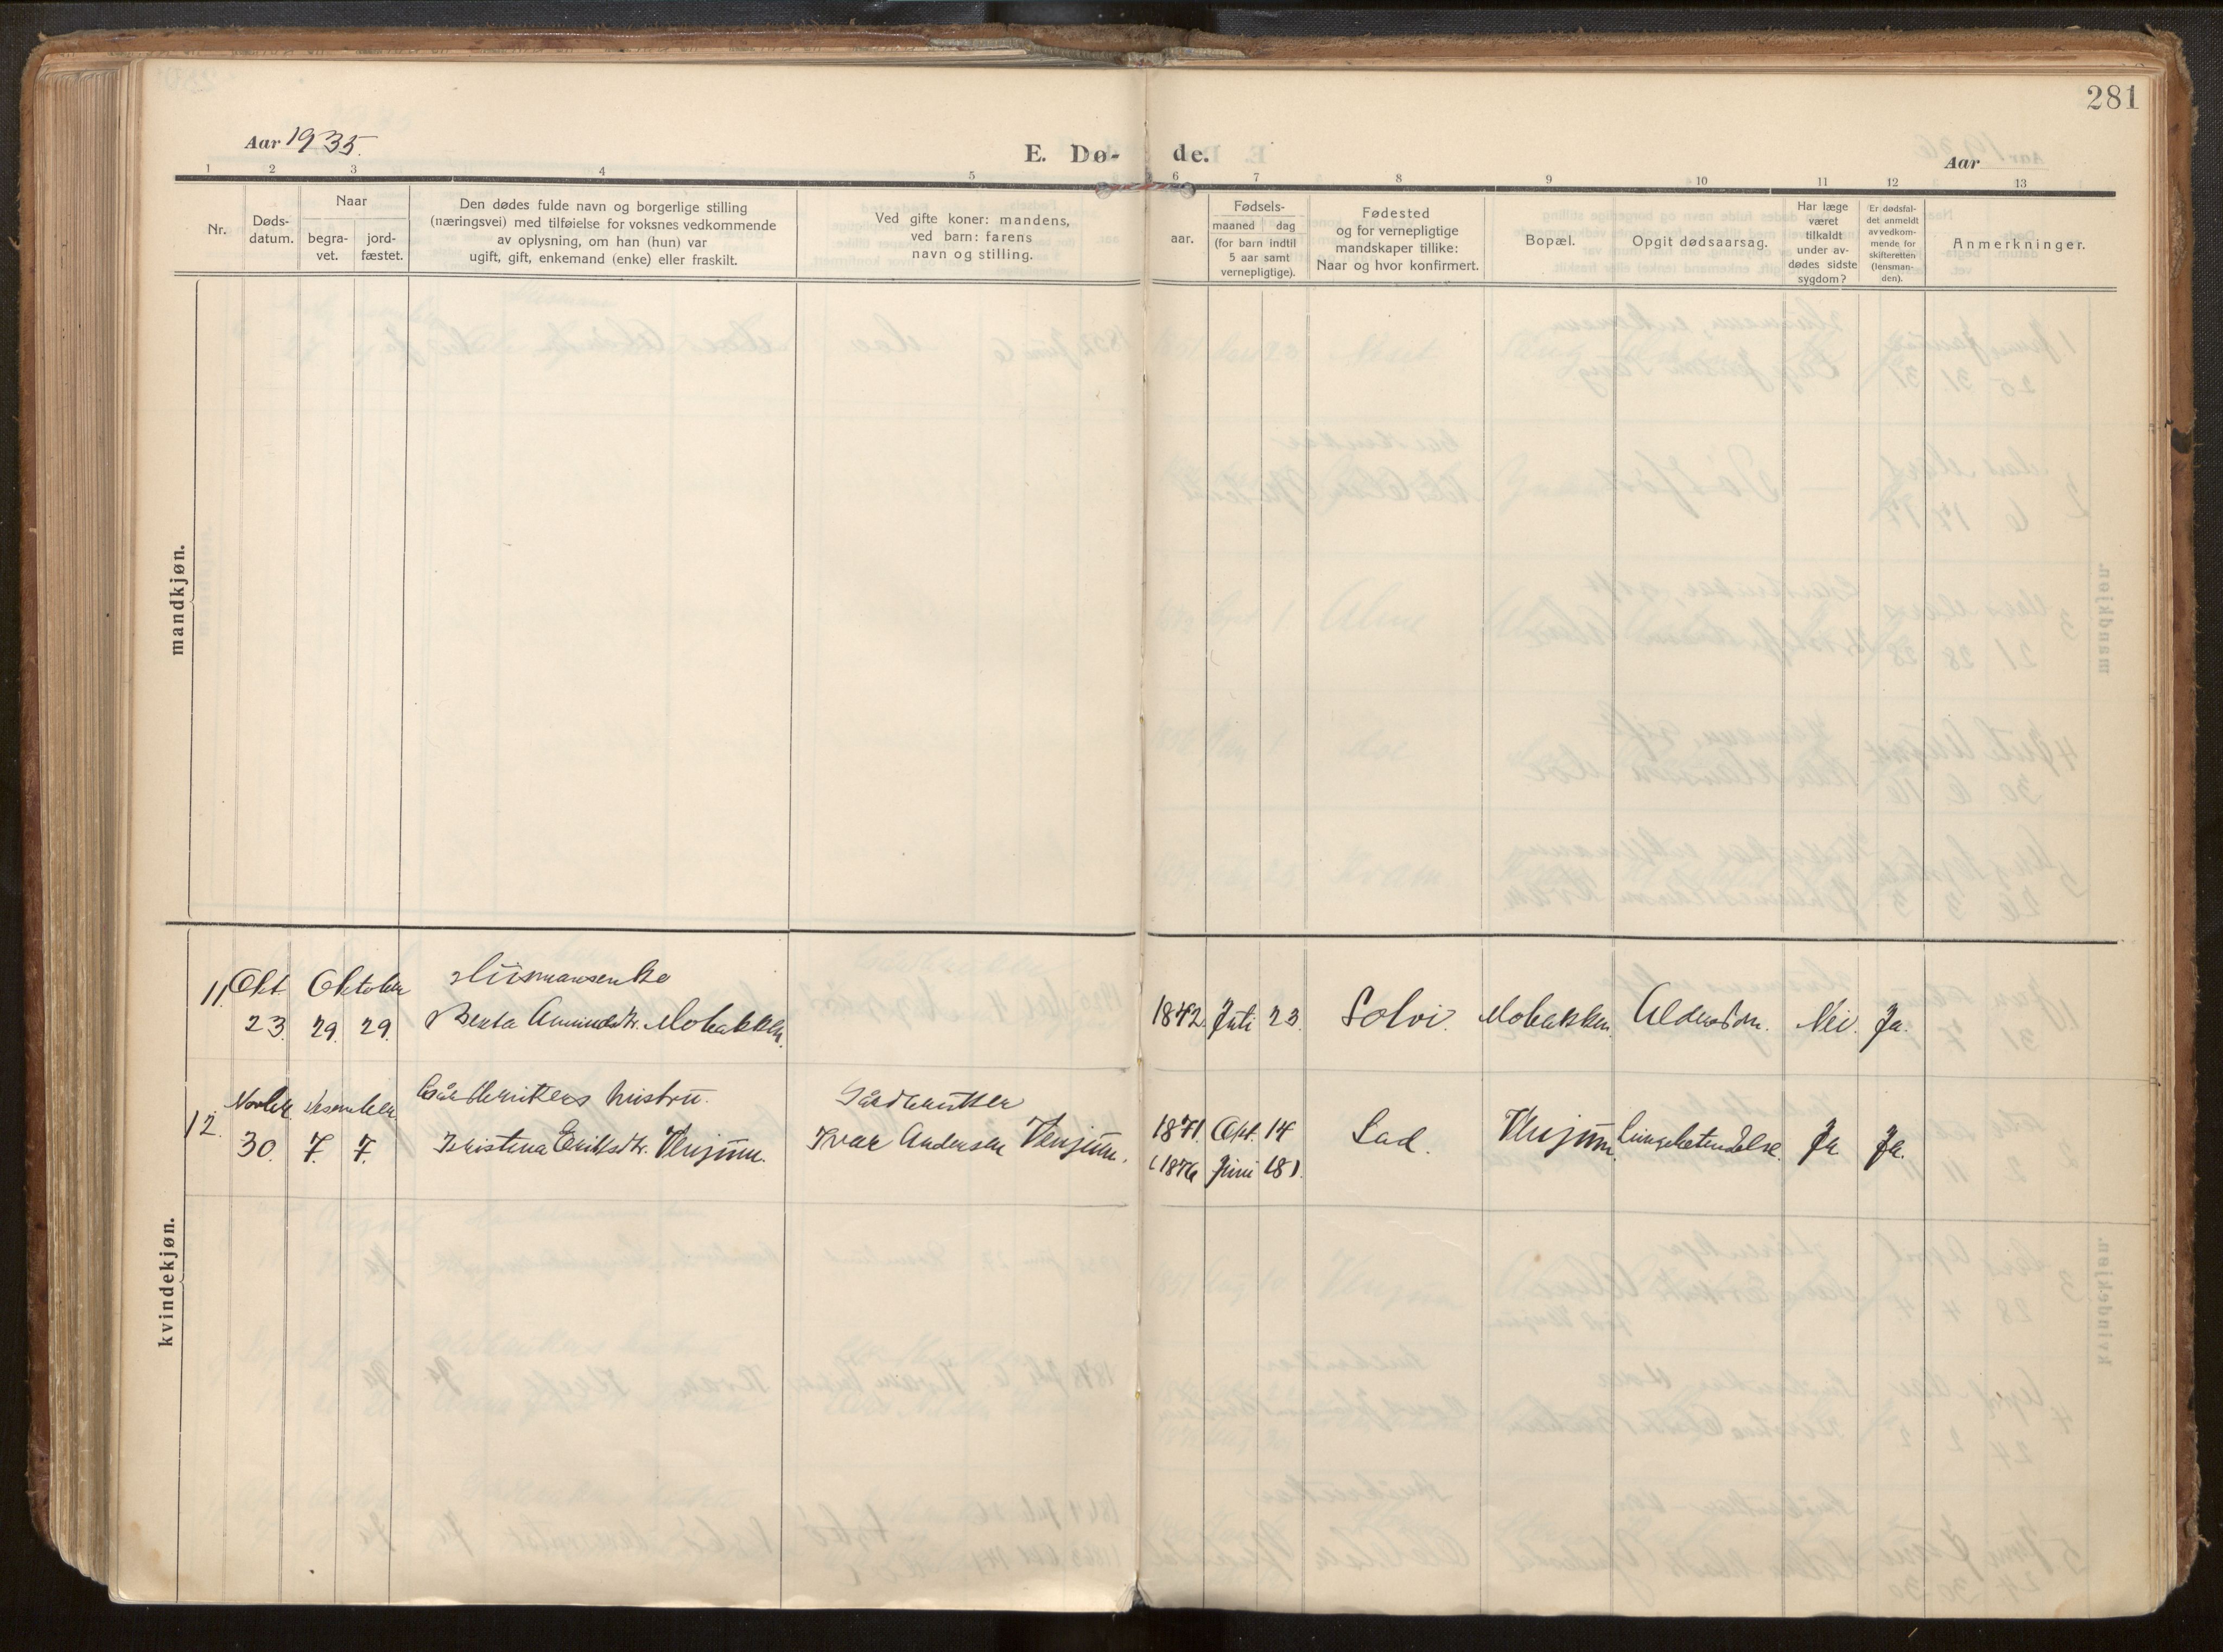 281
Aar 1935.
E. Dø- de.
Aar
1 2 3 4 5 6 7 8 9 10 11 12 13
Nr.
Døds-
datum.
Naar
begra-
vet.
jord-
fæstet.
Den dødes fulde navn og borgerlige stilling
(næringsvei) med tilføielse for voksnes vedkommende
av oplysning, om han (hun) var
ugift, gift, enkemand (enke) eller fraskilt.
Ved gifte koner: mandens,
ved barn: farens
navn og stilling.
aar.
Fødsels-
maaned dag
(for barn indtil
5 aar samt
vernepligtige).
Fødested
og for vernepligtige
mandskaper tillike:
Naar og hvor konfirmert.
Bopæl.
Opgit dødsaarsag.
Har læge
været
tilkaldt
under av-
dødes sidste
sygdom?
Er dødsfal-
det anmeldt
av vedkom-
mende for
skifteretten
(lensman-
den).
Anmerkninger.
mandkjøn.
11. Okt. Oktober Husmansenke
23. 29. 29. Benta Amundsdtr. Mobakken. 1842. Juli 23. Solvi. Mobakken. Alderdom. Nei. Ja.
12. Novbr. Desember Gårdbrukers hustru. Gårdbruker
30. 7. 7. Kristina Eriksdtr. Venjum. Ivar Andersen Venjum. 1871. Okt. 14 Lad. Venjum. Lungebetendelse. Ja Ja.
(1876 Juni 18).
kvindekjøn.